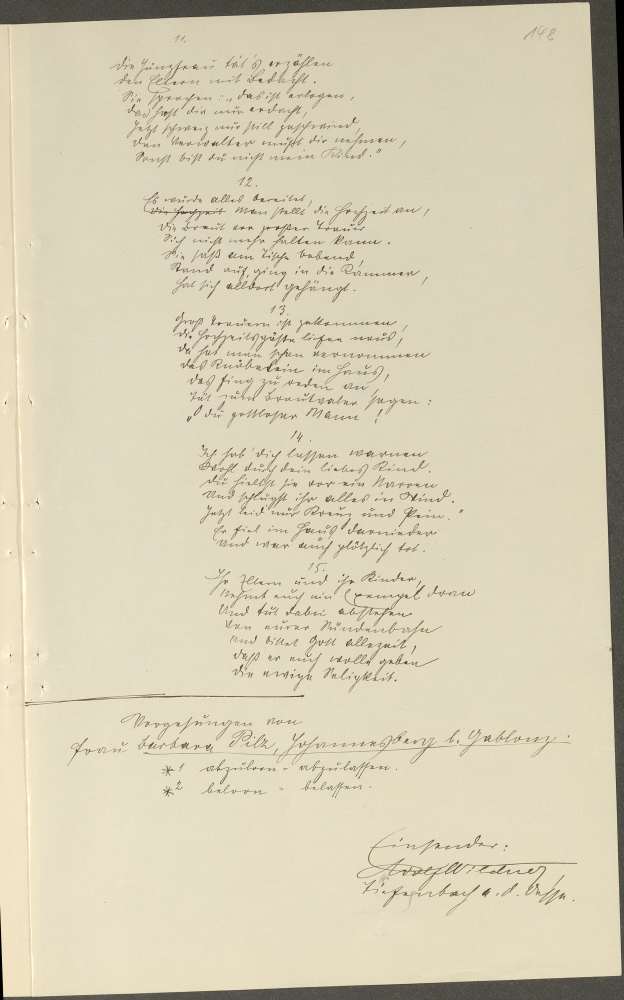 148
11.
Die Jungfrau tät's erzählen
den Eltern mit Bedacht.
Sie sprachen: „das ist erlogen,
das hast dir nur erdacht,
Jetzt schweig nur still geschwind,
den Verwalter mußt dir nehmen,
Sonst bist du nicht mein Kind."
12.
Es wurde alles bereitet,
Die Hochzeit Man stellt die Hochzeit an,
die Braut vor großer Trauer
Sich nicht mehr halten kann.
Sie saß am Tische bebend,
Stand auf, ging in die Kammer,
hat sich alldort gehängt.
13.
Groß Trauern ist gekommen,
die Hochzeitsgäste liefen naus,
da hat man schon vernommen
das Knäbelein im Haus,
das fing zu reden an,
tät zum Brautvater sagen:
„O du gottloser Mann!
14.
Ich hab' dich lassen warnen
Wohl durch dein liebes Kind.
du hielst sie vor ein Narren
Und schlugst ihr alles in Wind.
Jetzt leid nur Kreuz und Pein."
Er fiel im Haus darnieder
und war auch plötzlich tot.
15.
Ihr Eltern und ihr Kinder,
Nehmt euch ein Exempel dran
Und tut dabei abstehen
Von eurer Sündenbahn
und bittet Gott allezeit,
daß er euch wolle geben
die ewige Seligkeit.
Vorgesungen von
Frau Barbara Pilz, Johannesberg b. Gablonz.
*1 abzuloon = abzulassen.
*2 beloon = belassen.
Einsender:
Adolf Wildner
Tiefenbach a. d. Desse.